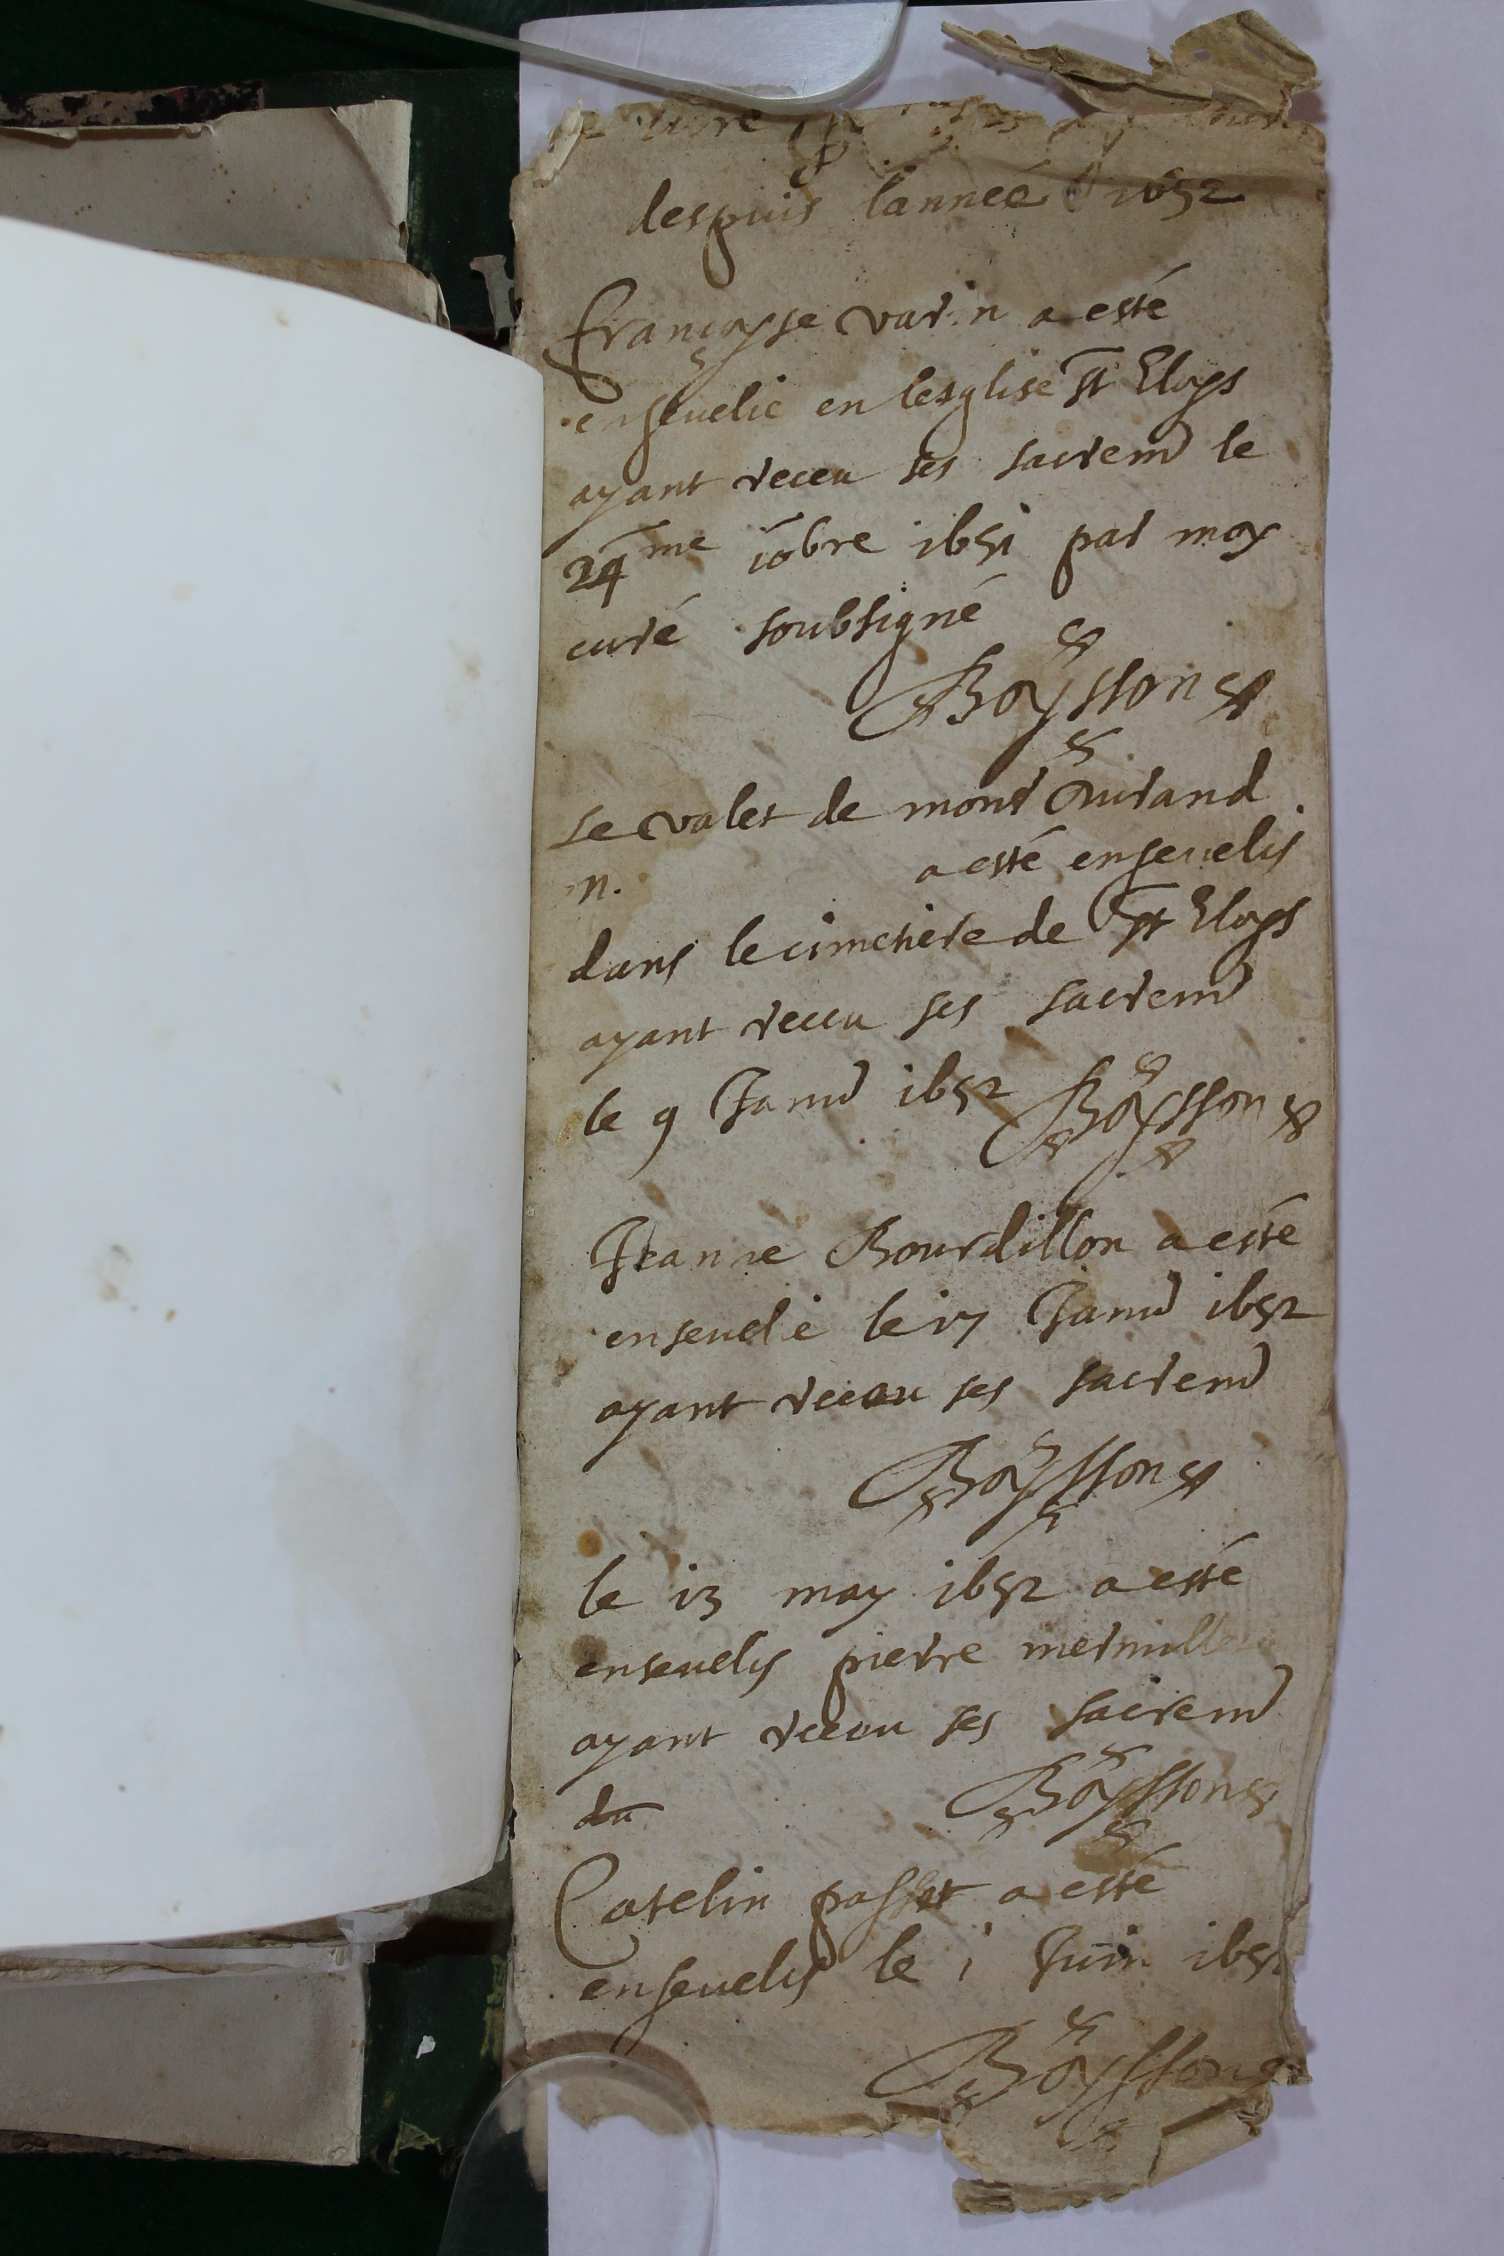 livre
despuis lanneé 1652
françoyse varin a esté
enseuelie en lesglise st Eloys
ayant receu ses sacrem le
24me 10bre 1651 par moy
curé soubsigné
Boÿsson
Le valet de monsr
n. a esté enseuelis
dans le cimetiere de st Eloys
ayant receu ses sacrem
le 9 Januʳ 1652 Boÿsson
Jeanne Bourdillon a esté
enseuelie le 17 Januʳ 1652
ayant receu ses sacrem
Boÿsson
le 13 may 1652 a esté
enseuelis pierre
ayant receu ses sacrem
du Boÿsson
Catelin passet a esté
enseuelis le 1 Juin 165
Boÿsson